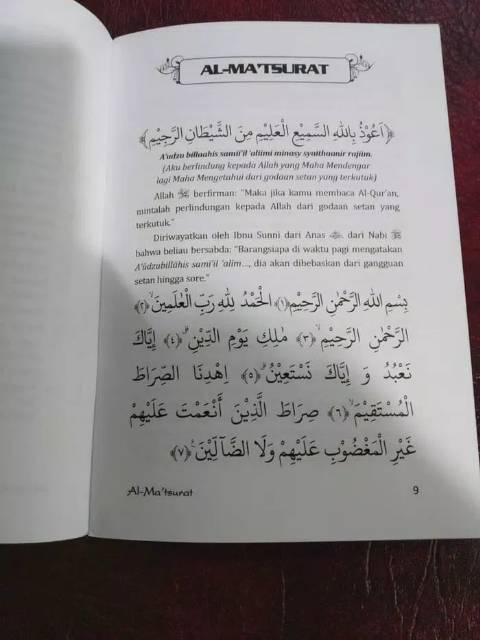 AL-MA'TSURAT
﴿اَعُوْذُ بِاللهِ السَّمِيْعِ الْعَلِيْمِ مِنَ الشَّيْطَانِ الرَّجِيْمِ﴾
A'udzu billaahis samii'il 'aliimi minasy syaithaanir rajiim.
(Aku berlindung kepada Allah yang Maha Mendengar
lagi Maha Mengetahui dari godaan setan yang terkutuk)
Allah ﷻ berfirman: "Maka jika kamu membaca Al-Qur'an,
mintalah perlindungan kepada Allah dari godaan setan yang
terkutuk."
Diriwayatkan oleh Ibnu Sunni dari Anas, dari Nabi ﷺ
bahwa beliau bersabda: "Barangsiapa di waktu pagi mengatakan
A'ûdzubillâhis samî'il 'alîm..., dia akan dibebaskan dari gangguan
setan hingga sore."
بِسْمِ اللهِ الرَّحْمٰنِ الرَّحِيْمِ ﴿١﴾ اَلْحَمْدُ لِلّٰهِ رَبِّ الْعٰلَمِيْنَۙ ﴿٢﴾
الرَّحْمٰنِ الرَّحِيْمِۙ ﴿٣﴾ مٰلِكِ يَوْمِ الدِّيْنِۗ ﴿٤﴾ إِيَّاكَ
نَعْبُدُ وَ إِيَّاكَ نَسْتَعِيْنُۗ ﴿٥﴾ اِهْدِنَا الصِّرَاطَ
الْمُسْتَقِيْمَۙ ﴿٦﴾ صِرَاطَ الَّذِيْنَ أَنْعَمْتَ عَلَيْهِمْ
غَيْرِ الْمَغْضُوْبِ عَلَيْهِمْ وَلَا الضَّآلِّيْنَ ﴿٧﴾
Al-Ma'tsurat
9